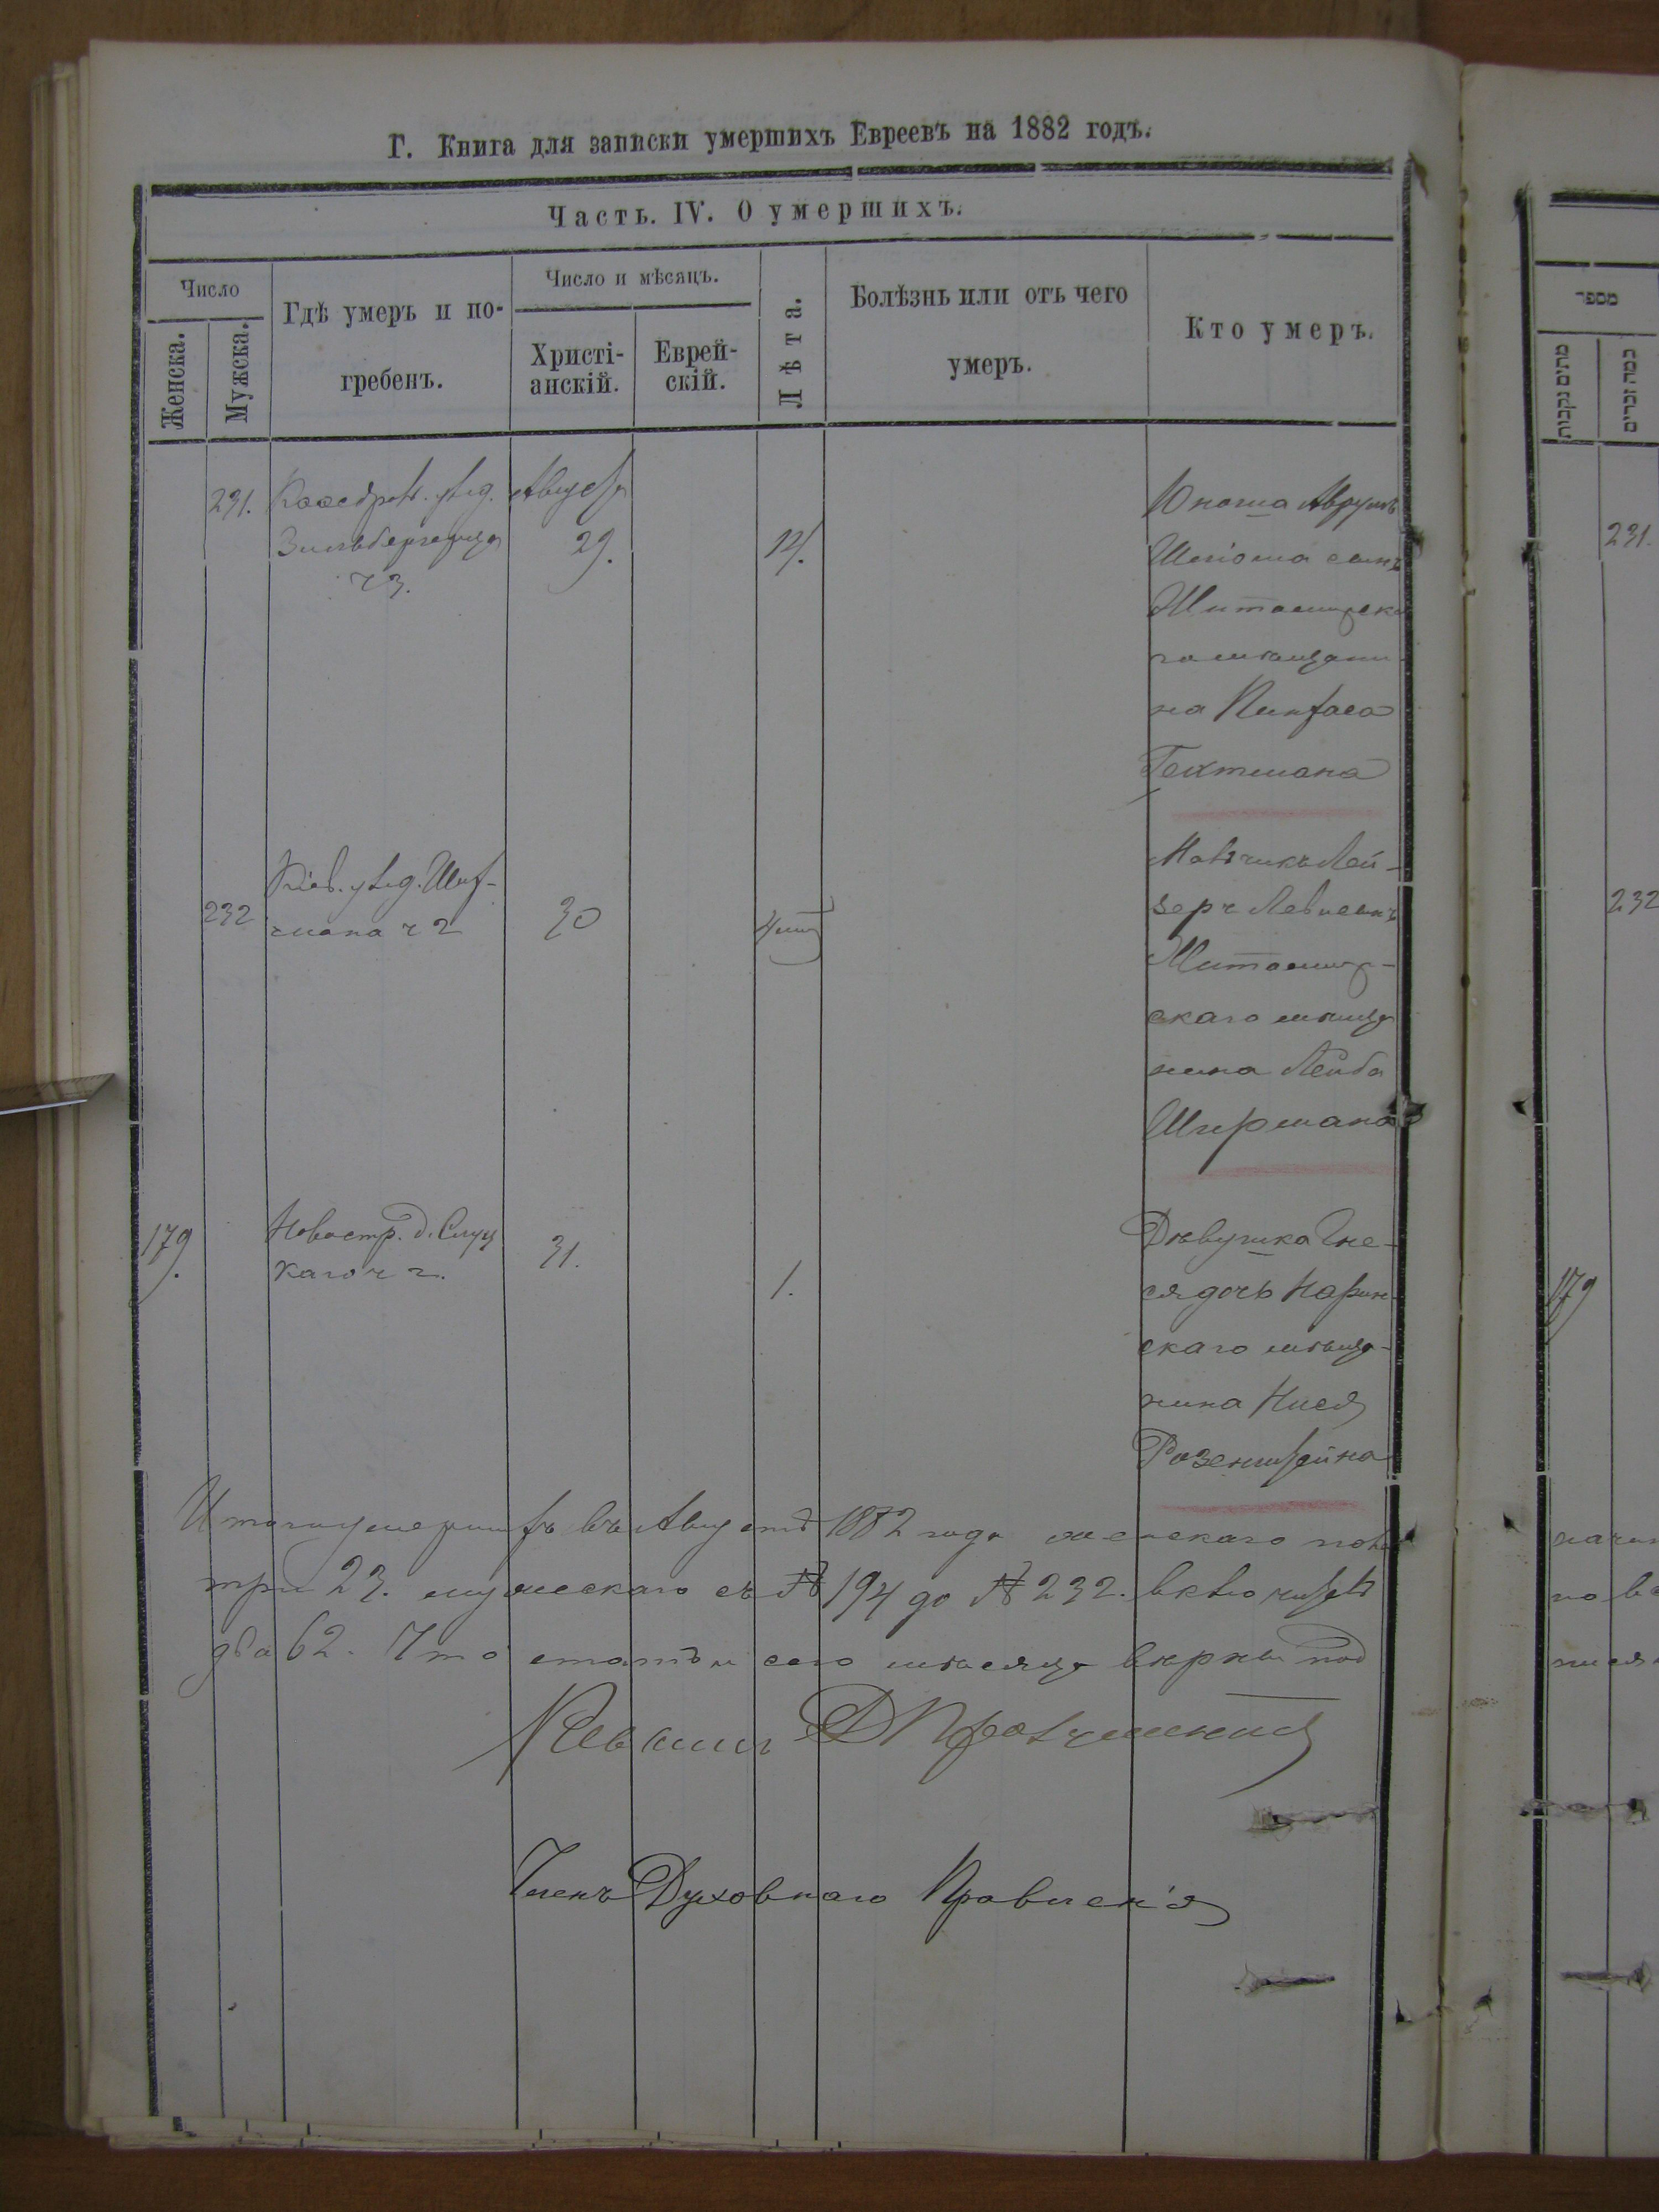 Г. Книга для записки умершихъ Евреевъ на 1882 годъ.
Часть. IV. О умершихъ.
Число
Женска.
Мужска.
Гдѣ умеръ и по-
гребенъ.
Число и мѣсяцъ.
Христі-
анскій.
Еврей-
скій.
Лѣта.
Болѣзнь или отъ чего
умеръ.
Кто умеръ.
231.
Зильбергарца
ч 3.
Августа
29.
Юноша Аврумъ
Шліома сынъ
Житомирска
го мѣщани
на Пинхаса
Гехтмана
232
ч 2
30
4
Мальчикъ Лей-
зеръ
Житомир-
скаго мѣща
нина Лейба
Ширмана
179.
Новостр. д. Слуц
каго ч 2.
31.
1.
Дѣвушка Гне-
ся дочь
скаго мѣща-
нина Нися
Розенштейна
Итого умершихъ въ Августѣ 1882 года женскаго пола
три 23. мужескаго съ № 194 до № 232. включит.
два 62. Что статьи сего мѣсяца вѣрны под
Раввинъ
Членъ Духовнаго Правленія
מספר
מתים נקבות
כמה זכרים
231.
232
179